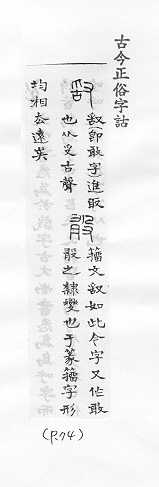 古今正俗字詁
𠭖即敢字進取
也从𠬪古聲
籀文𠭖如此今字又作敢
之隸變也于篆籀字形
均相去遠矣
(P.74)